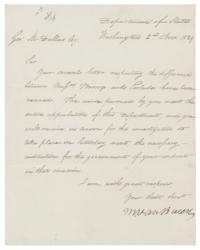 Department of State
Washington 2d Nov. 1829
Geo. M. Dallas Esq
Sir
Your several letters respecting the difference
between Messrs
received. The course pursued by you meet the
entire approbation of this Department, and you
will receive, as soon as the investigation to
take place on Saturday next the necessary
instructions for the government of your conduct
in that
I am, with great respect,
Your Obedt Servt
M Van Buren